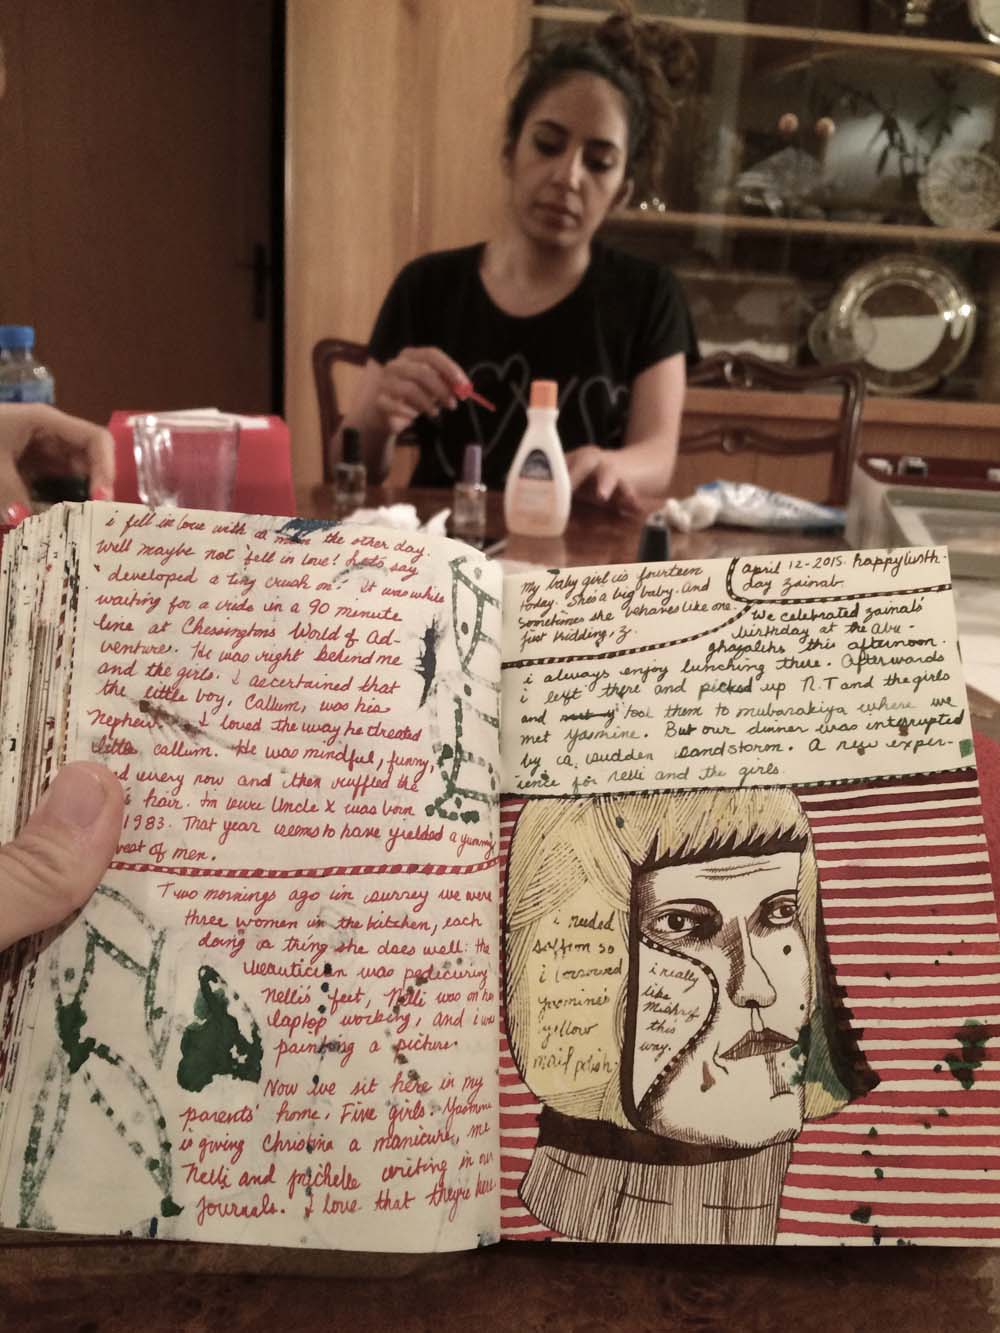 i fell in love with a man the other day.
Well maybe not "fell in love! Let's say
"developed a tiny crush on." It was while
waiting for a ride in a 90 minute
line at Chessingtons World of Ad-
ventures. He was right behind me
and the girls. I ascertained that
the little boy, Callum, was his
Nephew. I loved the way he treated
little callum. He was mindful, funny,
every now and then ruffled the
hair. I'm sure Uncle X was born
1983. That year seems to have yielded a yummy
of men.
Two mornings ago in surrey we were
three women in the kitchen, each
doing a thing she does well: the
beautician was pedicuring
Nelli's feet, Nelli was on her
laptop working, and i was
painting a picture.
Now we sit here in my
parents' home. Five girls. Yasmine
is giving Christina a manicure, me
Nelli and michelle writing in our
journals. I love that they're here.
My baby girl is fourteen
today. She's a big baby. And
sometimes she behaves like one.
just kidding, z.
april 12-2015. happy birth-
day zainab.
We celebrated zainab's
birthday at the Abu-
ghazalehs this afternoon.
i always enjoy lunching there. Afterwards
i left there and picked up N.T and the girls
and took them to mubarakiya where we
met Yasmine. But our dinner was interrupted
by a sudden sandstorm. A new exper-
ience for nelli and the girls.
i needed
saffron so
i borrowed
yasmine's
yellow
nail polish.
i really
like
this
way.